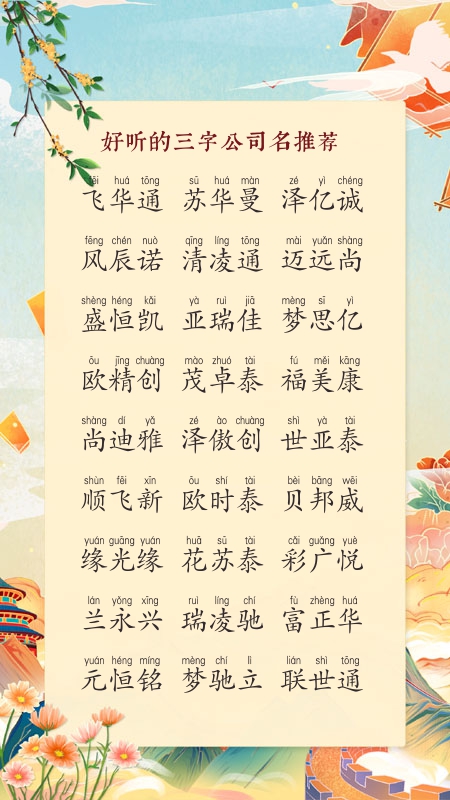 好听的三字公司名推荐
fēi huá tōng sū huá màn zé yì chéng
飞华通 苏华曼 泽亿诚
fēng chén nuò qīng líng tōng mài yuǎn shàng
风辰诺 清凌通 迈远尚
shèng héng kǎi yà ruì jiā mèng sī yì
盛恒凯 亚瑞佳 梦思亿
ōu jīng chuàng mào zhuó tài fú měi kāng
欧精创 茂卓泰 福美康
shàng dí yǎ zé ào chuàng shì yà tài
尚迪雅 泽傲创 世亚泰
shùn fēi xīn ōu shí tài bèi bāng wēi
顺飞新 欧时泰 贝邦威
yuán guāng yuán huā sū tài cǎi guǎng yuè
缘光缘 花苏泰 彩广悦
lán yǒng xīng ruì líng chí fù zhèng huá
兰永兴 瑞凌驰 富正华
yuán héng míng mèng chí lì lián shì tōng
元恒铭 梦驰立 联世通